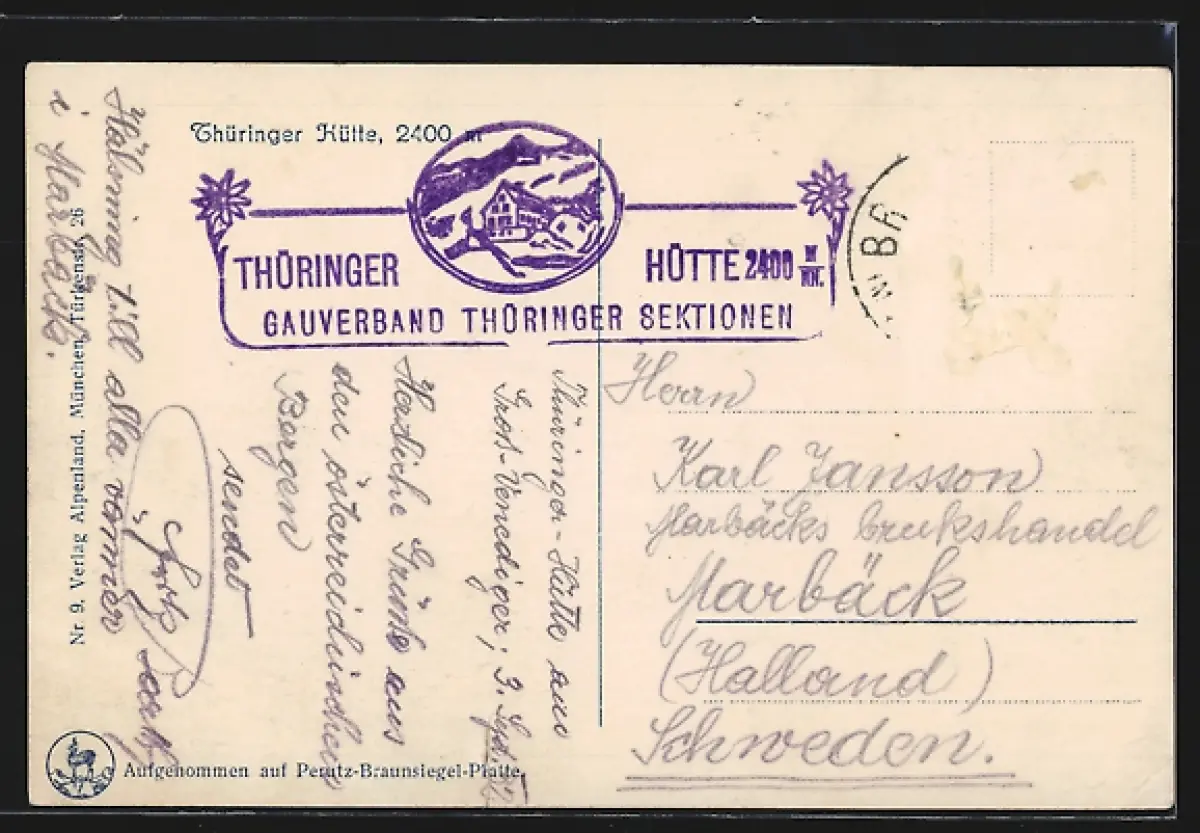 Thüringer Hütte, 2400 m
THÜRINGER HÜTTE 2400 M/NN.
GAUVERBAND THÜRINGER SEKTIONEN
BR
Thüringer-Hütte am
Gros-Venediger, 3. Sept. 32
Herzliche Grüße aus
den österreichischen
Bergen
sendet
Fritz
Hälsning till alla vänner
i Marbäck.
Herrn
Karl Jansson
Marbäcks brukshandel
Marbäck
(Halland)
Schweden.
Nr. 9. Verlag Alpenland, München, Türkenstr. 26
Aufgenommen auf Perutz-Braunsiegel-Platte.